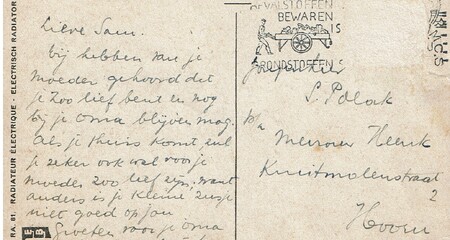 RA. 61. RADIATEUR ÉLECTRIQUE - ELECTRISCH RADIATOR
Lieve Sam.
Wij hebben van je
moeder gehoord dat
je zoo lief bent en nog
bij je oma blijven mag.
Als je thuis komt, zul
je zeker ook wel voor je
moeder zoo lief zijn, want
anders is je kleine zusje
niet goed op jou
Groeten voor je oma
AFVALSTOFFEN
BEWAREN
IS
GRONDSTOFFEN
S. Polak
p/a
Mevrouw Henk
Kruitmolenstraat
2
Hoorn